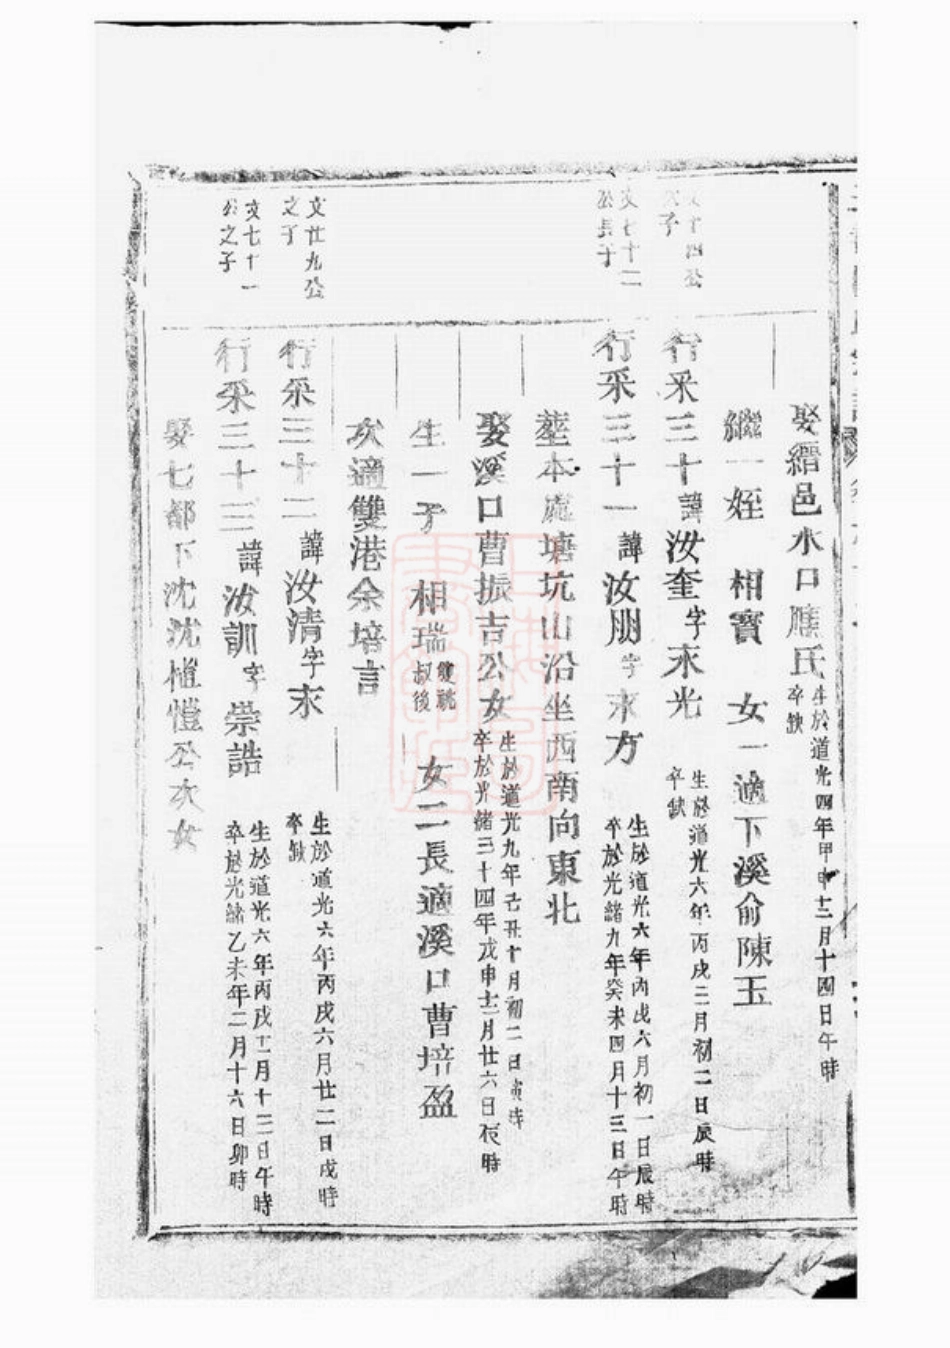 娶縉邑水口應氏生於道光四年甲申十二月十四日午時
卒缺
繼一姪 相寶 女一適下溪俞陳玉
文十四公
次子
行釆三十諱汝奎字末光生於道光六年丙戌二月初二日辰時
卒缺
文七十二
公長子
行釆三十一諱汝朋字末方生於道光六年丙戌六月初一日辰時
卒於光緒九年癸未四月十三日午時
塟本處塘坑山沿坐西南向東北
娶溪口曹振吉公女生於道光九年己丑十月初二日寅時
卒於光緒三十四年戊申十二月廿六日辰時
生一子 相瑞雙祧
叔後 女二長適溪口曹培盈
次適雙港余培言
文廿九公
之子
行釆三十二諱汝清字末 生於道光六年丙戌六月廿二日戌時
卒缺
文七十一
公之子
行釆三十三諱汝訓字崇誥生於道光六年丙戌十二月十三日午時
卒於光緒乙未年二月十六日卯時
娶七都下沈沈愷公次女